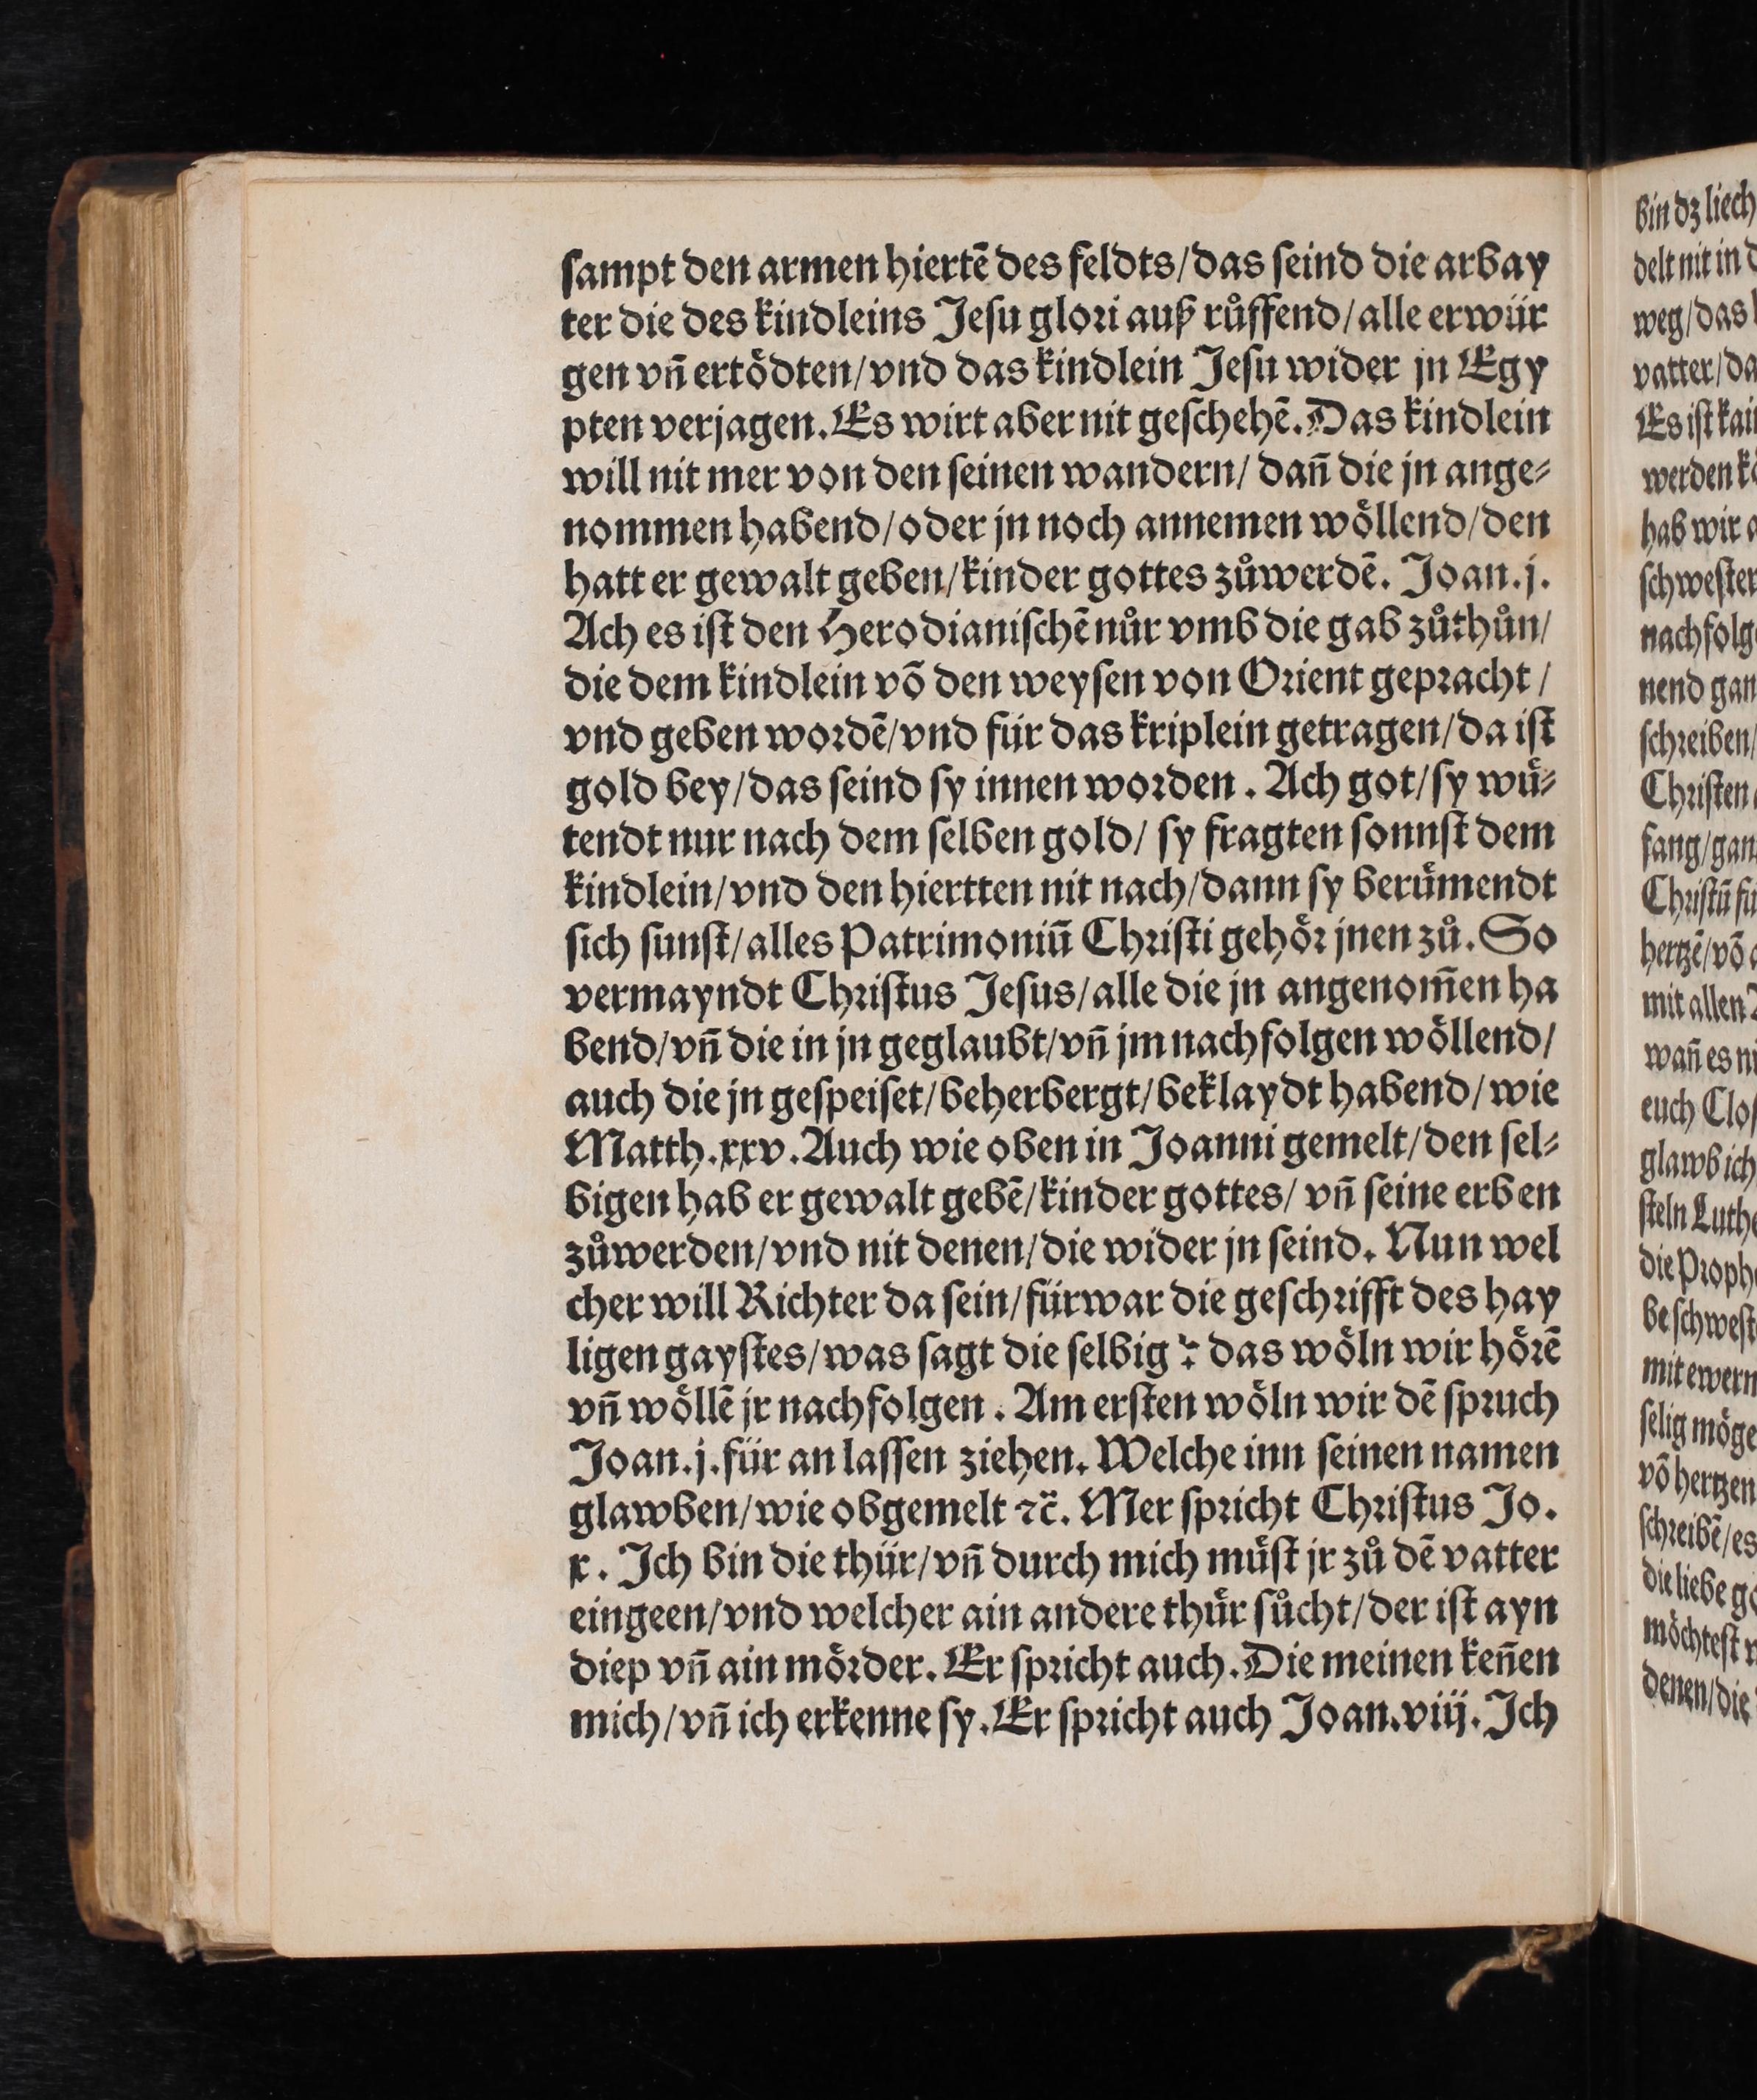 sampt den armen hiertẽ des feldts/das seind die arbay
ter die des kindleins Jesu glori auß růffend/alle erwür
gen vñ ertödten/vnd das kindlein Jesu wider jn Egy
pten verjagen. Es wirt aber nit geschehẽ. Das kindlein
will nit mer von den seinen wandern/ dañ die jn ange⸗
nommen habend/oder jn noch annemen wöllend/den
hatt er gewalt geben/kinder gottes zůwerdẽ. Joan.j.
Ach es ist den Herodianischẽ nůr vmb die gab zůthůn/
die dem kindlein võ den weysen von Orient gepracht /
vnd geben wordẽ/vnd für das kriplein getragen/da ist
gold bey/das seind sy innen worden. Ach got/sy wü⸗
tendt nur nach dem selben gold/ sy fragten sonnst dem
kindlein/vnd den hiertten nit nach/dann sy berümendt
sich sunst/alles Patrimoniũ Christi gehör jnen zů. So
vermayndt Christus Jesus/alle die jn angenom̃en ha
bend/vñ die in jn geglaubt/vñ jm nachfolgen wöllend/
auch die jn gespeiset/beherbergt/beklaydt habend/wie
Matth.xxv. Auch wie oben in Joanni gemelt/den sel⸗
bigen hab er gewalt gebẽ/kinder gottes/ vñ seine erben
zůwerden/vnd nit denen/die wider jn seind. Nun wel
cher will Richter da sein/fürwar die geschrifft des hay
ligen gaystes/was sagt die selbig? das wöln wir hörẽ
vñ wöllẽ jr nachfolgen. Am ersten wöln wir dẽ spruch
Joan.j. für an lassen ziehen. Welche inn seinen namen
glawben/wie obgemelt ⁊c̃. Mer spricht Christus Jo.
x. Ich bin die thür/vñ durch mich müst jr zů dẽ vatter
eingeen/vnd welcher ain andere thür sůcht/der ist ayn
diep vñ ain mörder. Er spricht auch. Die meinen keñen
mich/vñ ich erkenne sy. Er spricht auch Joan.viij. Ich
bin dz liech
delt nit in
weg/das
vatter/da
Es ist kai
werden
hab wir
schwester
nachfolg
nend gan
schreiben/
Christen
fang/gan
Christũ fü
hertzẽ/võ
mit allen
wañ es ni
euch Clos
glawb ich
steln Luthe
die Proph
be schwest
mit ewern
selig möge
võ hertzen
schreibẽ/es
die liebe go
möchtest
denen/die